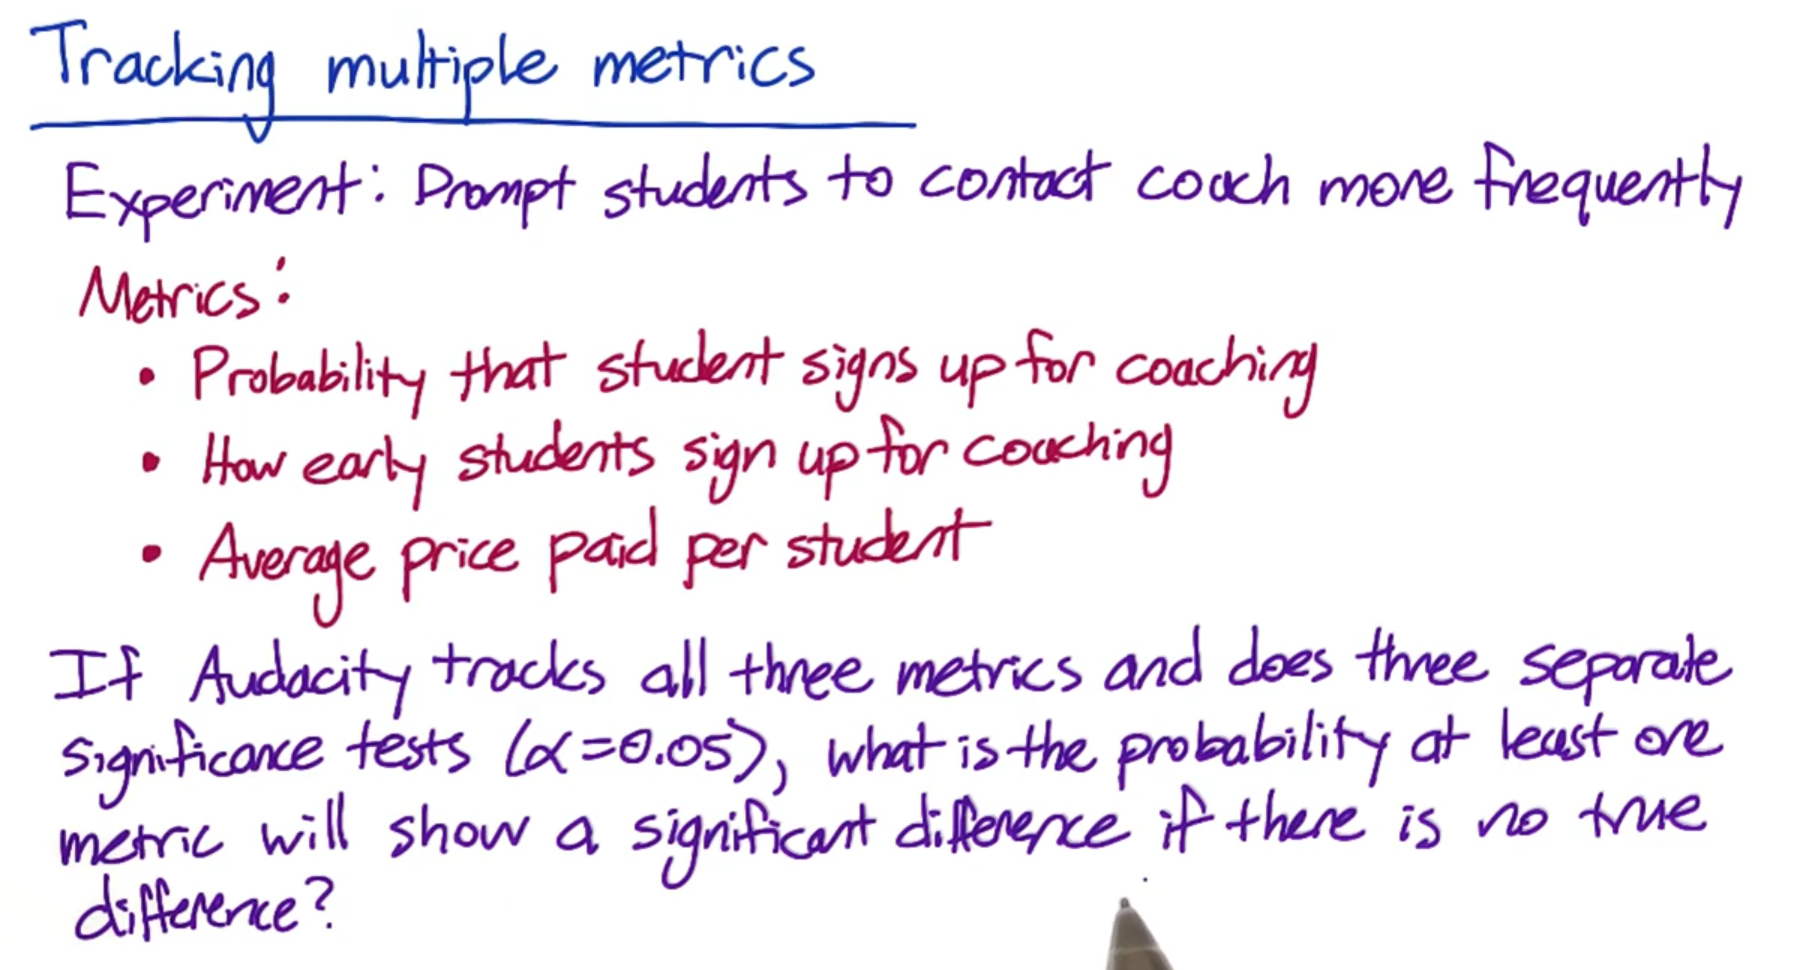 Tracking multiple metrics
Experiment: Prompt students to contact coach more frequently
Metrics:
• Probability that student signs up for coaching
• How early students sign up for coaching
• Average price paid per student
If Audacity tracks all three metrics and does three separate
significance tests (α=0.05), what is the probability at least one
metric will show a significant difference if there is no true
difference?